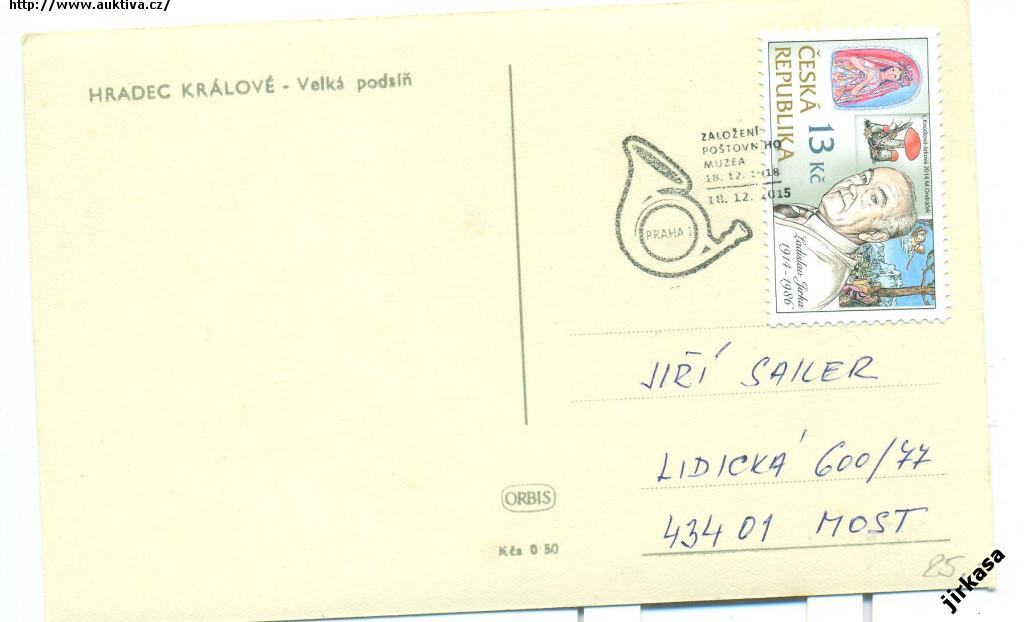 http://www.auktiva.cz/
HRADEC KRÁLOVÉ - Velká podsíň
ZALOŽENÍ
POŠTOVNÍHO
MUZEA
18. 12. 1918
18. 12. 2015
PRAHA 1
ČESKÁ
REPUBLIKA
13 Kč
Ladislav Jirka
1914-1986
JIŘÍ SAILER
LIDICKÁ 600/77
434 01 MOST
ORBIS
Kčs 0·50
25,-
jirkasa